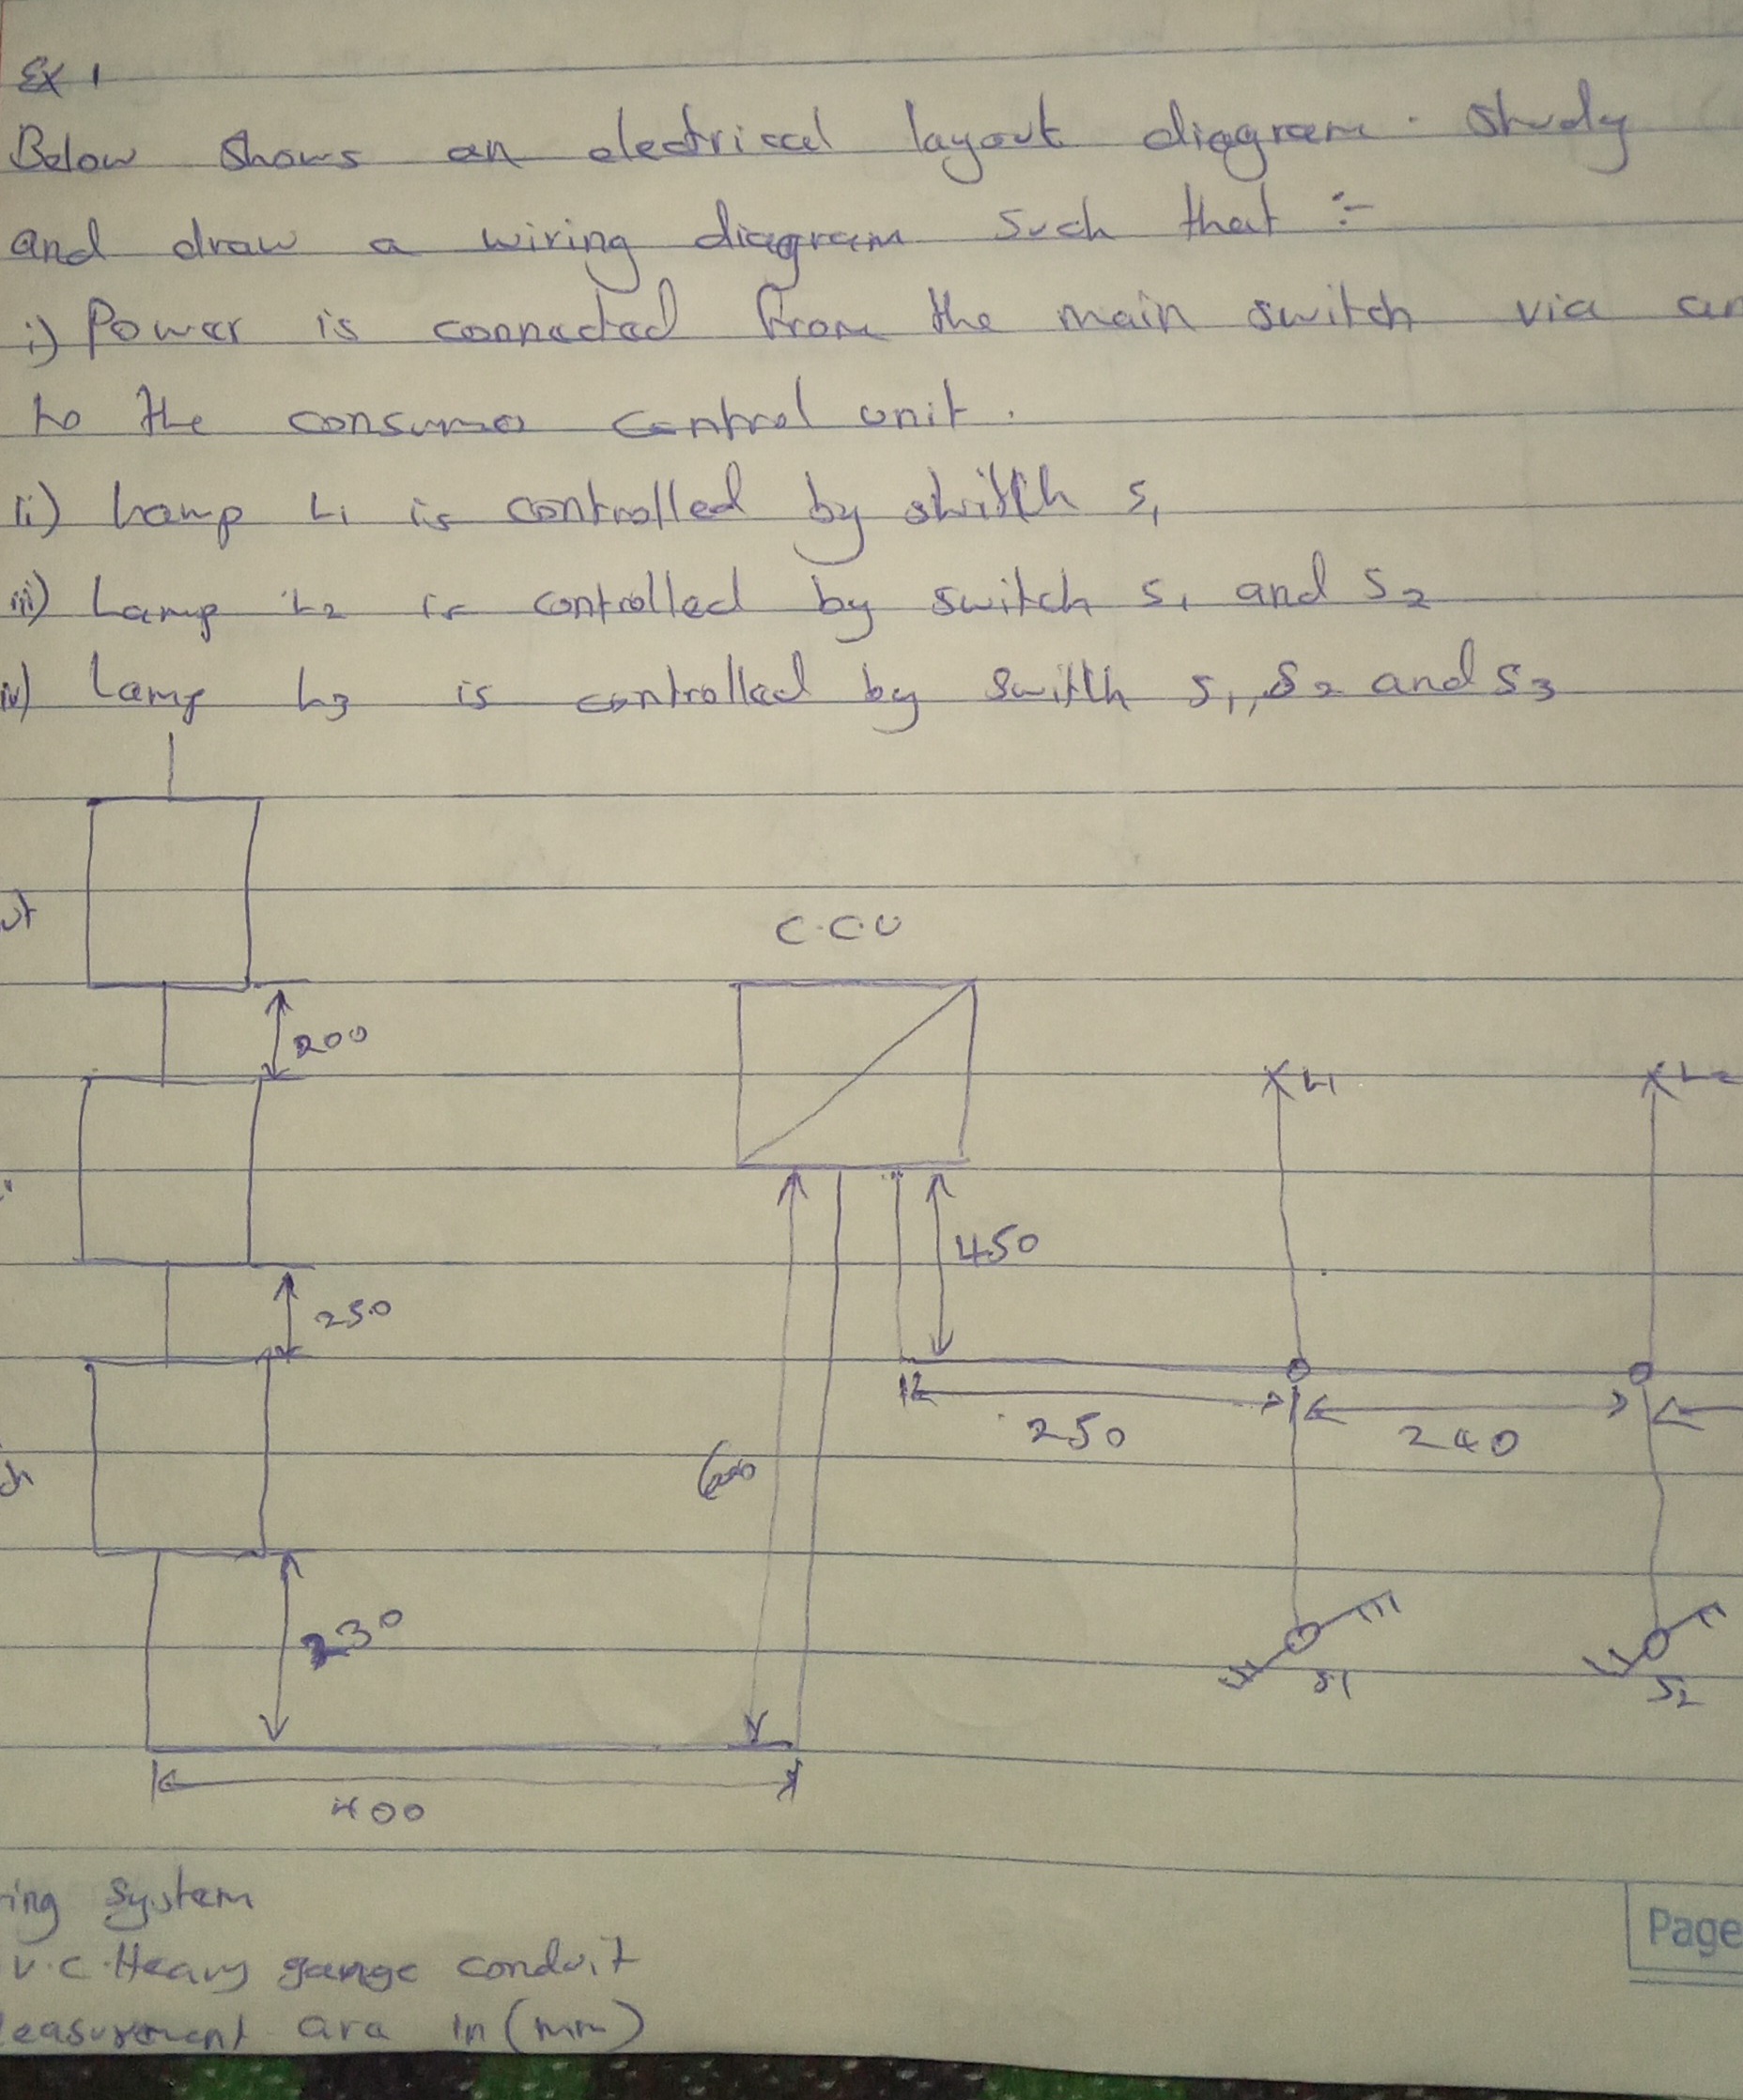 Ex 1
Below shows an electrical layout diagram. Study
and draw a wiring diagram such that :-
i) Power is connected from the main switch via an
to the consumer control unit.
ii) Lamp L1 is controlled by switch S1
iii) Lamp L2 is controlled by switch S1 and S2
iv) Lamp L3 is controlled by switch S1, S2 and S3
C.C.U
200
L1
L2
450
250
250
240
600
230
S1
S2
400
ing System
V.C. Heavy gauge conduit
easurement are in (mm)
Page